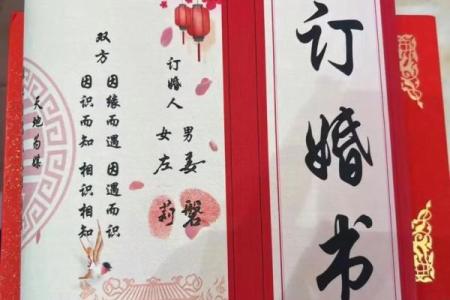 订婚书
订婚人
男 姜磐
女 左莉
双方
因缘而遇 因遇而识
因识而知 相识相知
天地为媒